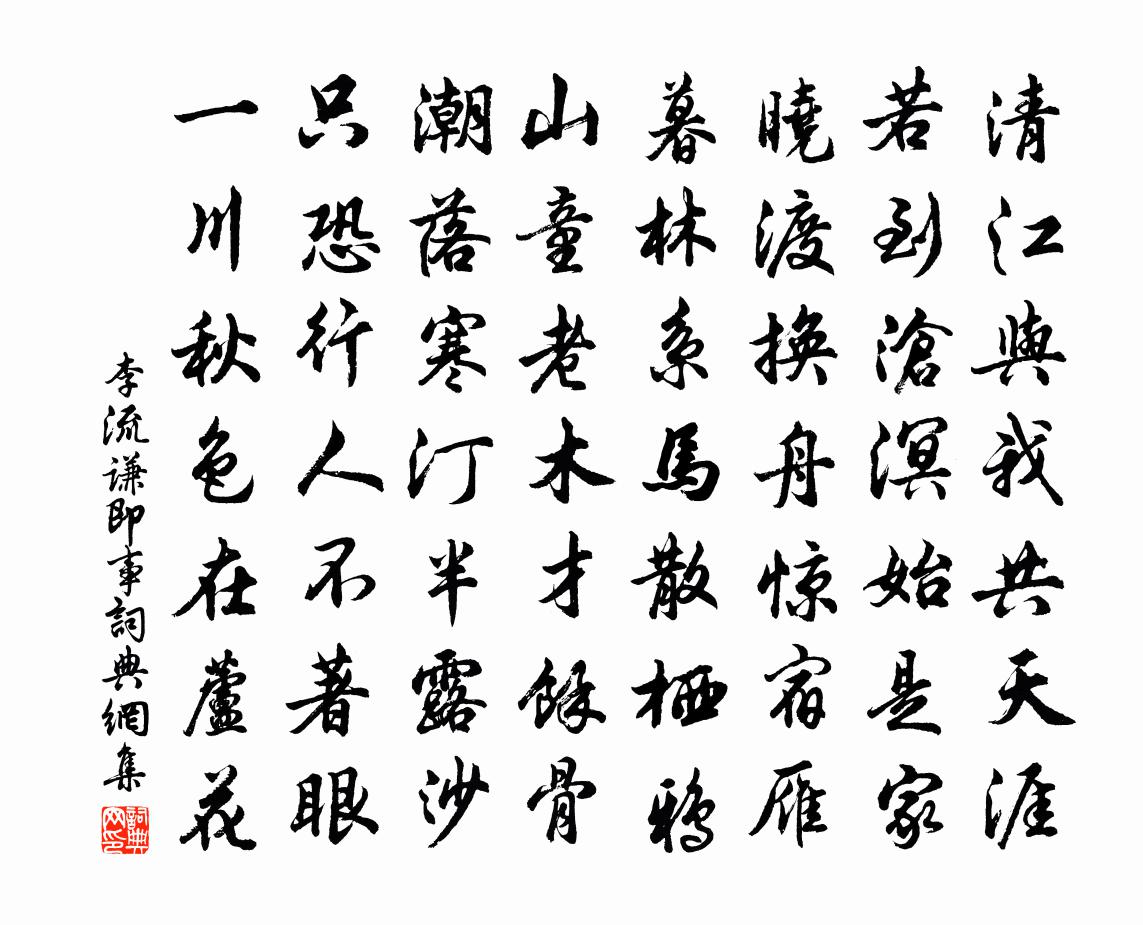 清江與我共天涯
若到滄溟始是家
曉渡換舟惊宿雁
暮林系馬散栖鴉
山童老木才餘骨
潮落寒汀半露沙
只恐行人不著眼
一川秋色在蘆花
李流谦即事詞典網集
詞典网印